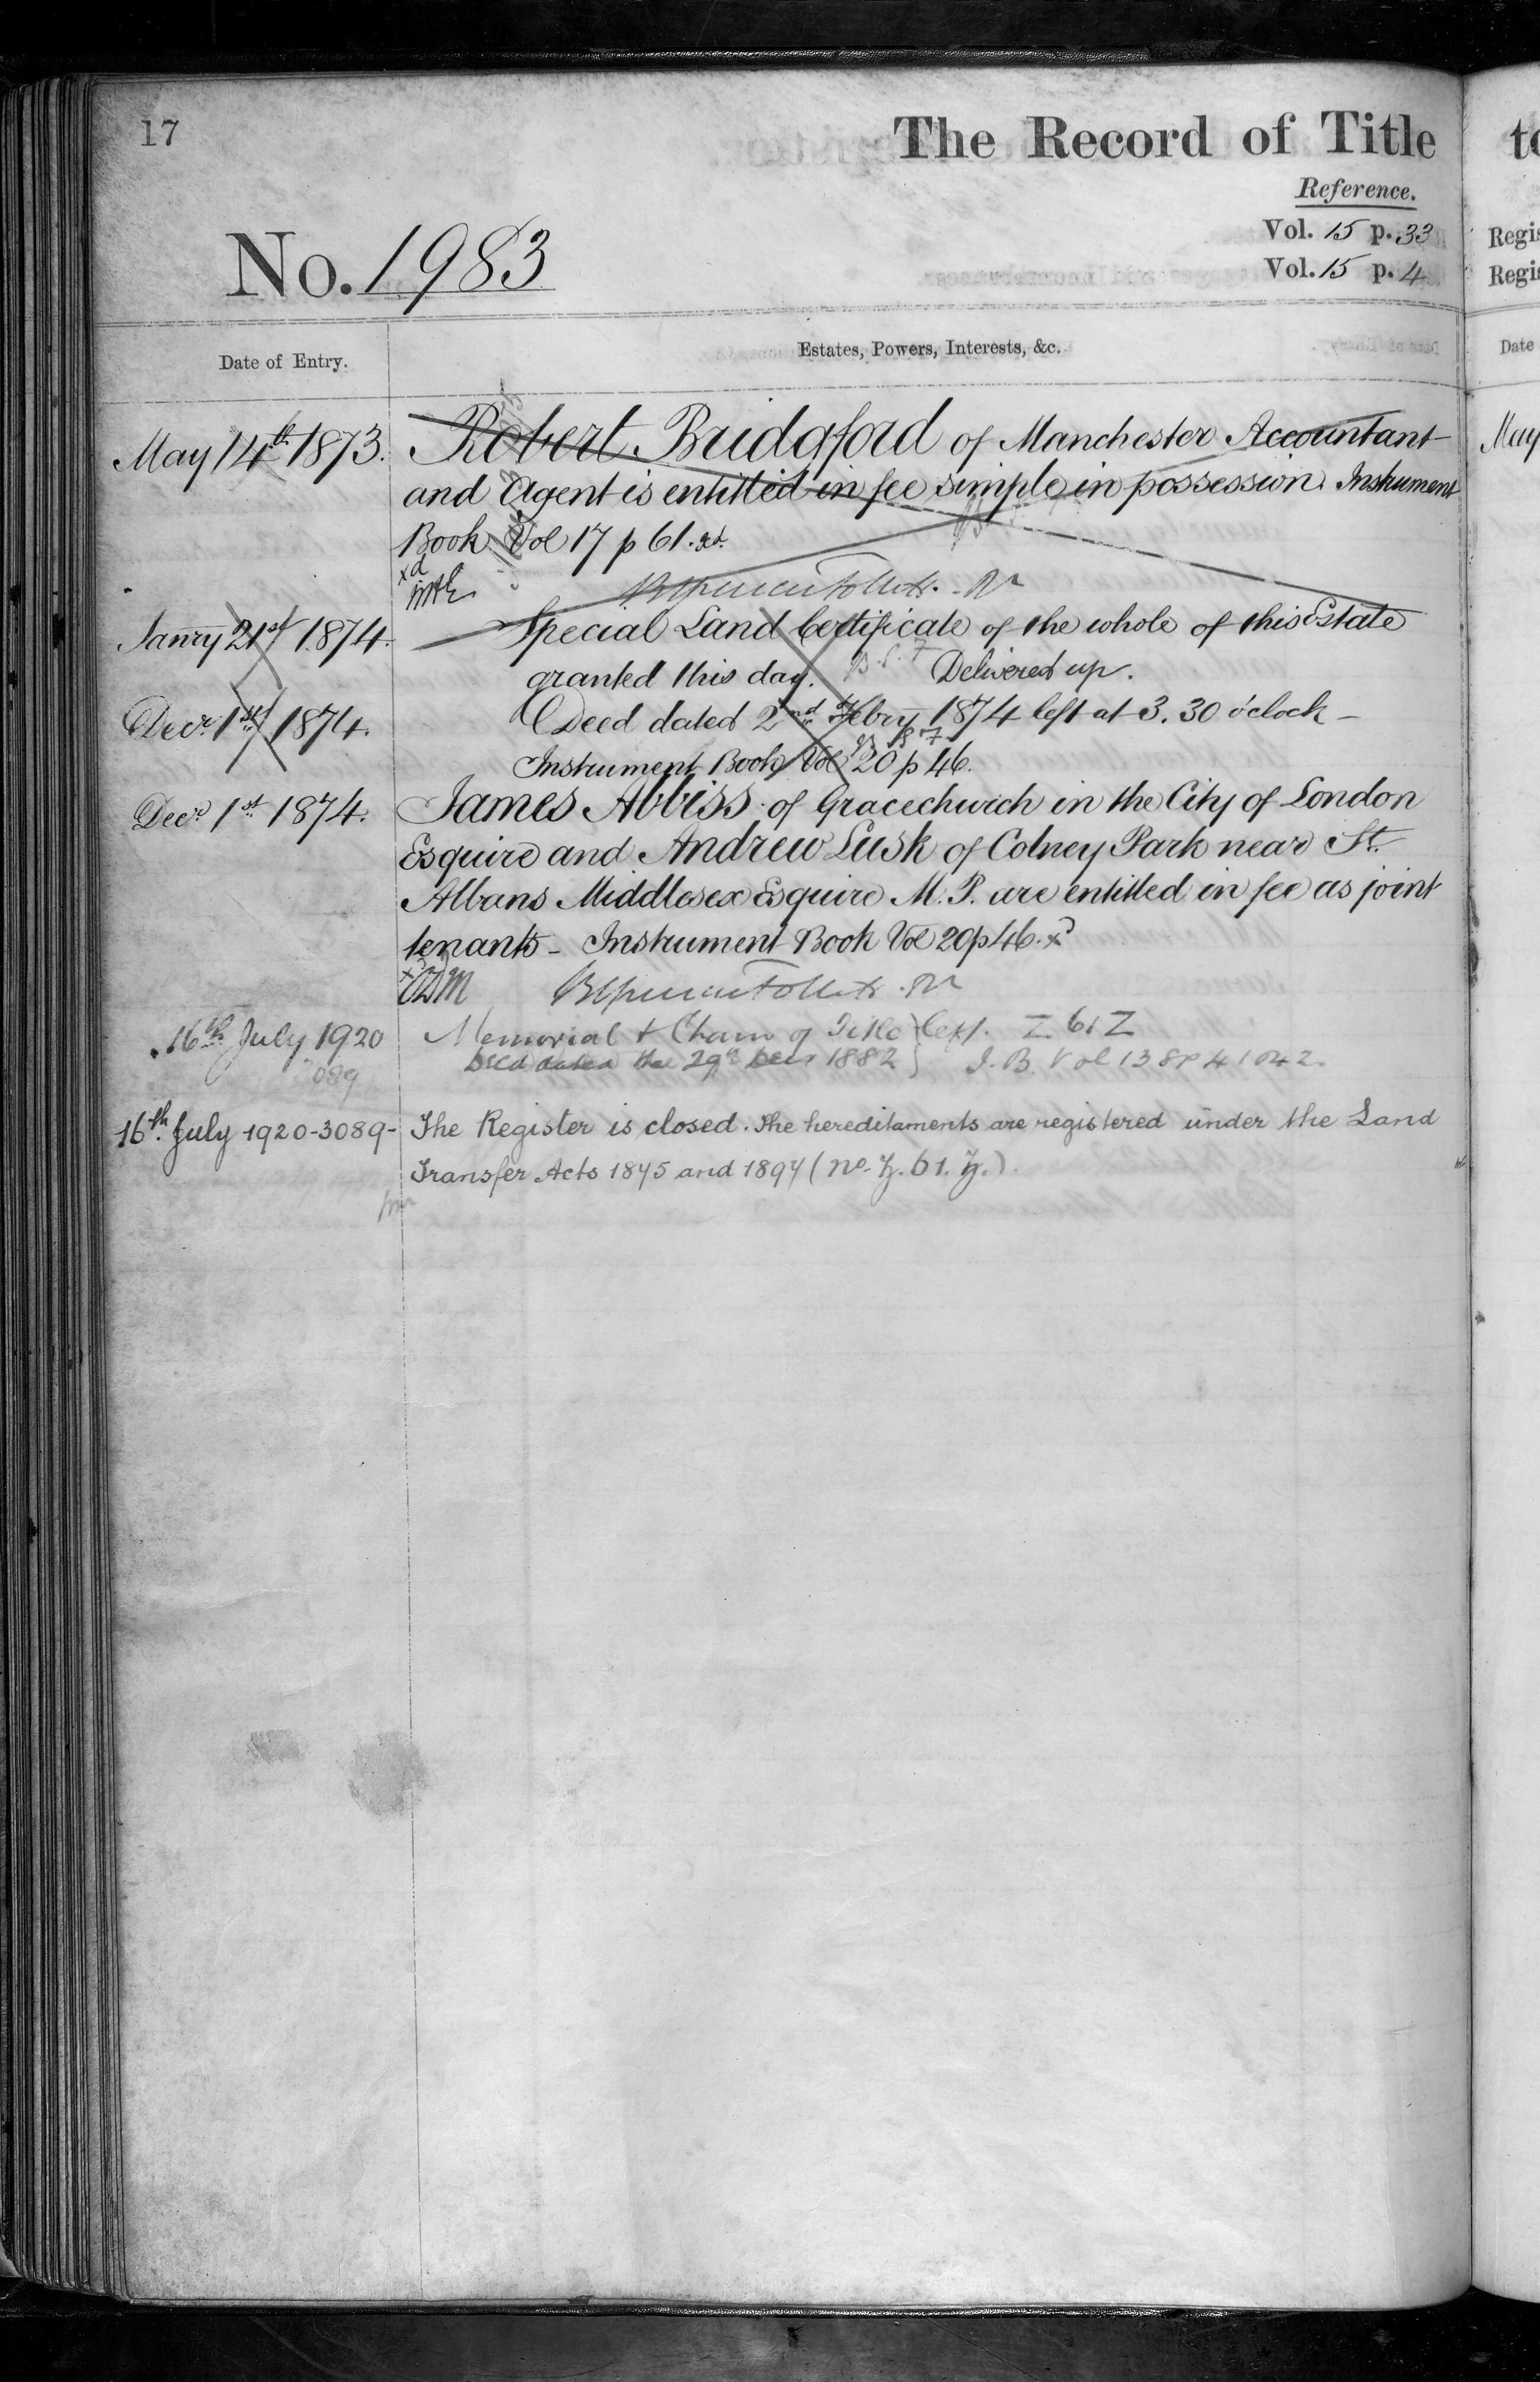 17
The Record of Title
Reference.
Vol. 15 p. 33
Vol. 15 p. 4
No. 1983
Date of Entry.
Estates, Powers, Interests, &c.
May 14th 1873. Robert Bridgford of Manchester Accountant
and Agent is entitled in fee simple in possession. Instrument
Book Vol 17 p 61. xd.
xd
Janry 21st 1874. Special Land Certificate of the whole of this Estate
granted this day. Delivered up.
Decr. 1st 1874. Deed dated 2nd Febry 1874 left at 3.30 o'clock -
Instrument Book Vol 20 p 46.
Decr. 1st 1874. James Abbiss of Gracechurch in the City of London
Esquire and Andrew Lusk of Colney Park near St.
Albans Middlesex Esquire M.P. are entitled in fee as joint
tenants - Instrument Book Vol 20 p 46. xd
16th July 1920 Memorial & Chain of Title Z 61 Z
089 Deed dated the 29th 1882 } I.B. Vol 138 P 41 & 42.
16th July 1920-3089- The Register is closed. The hereditaments are registered under the Land
Transfer Acts 1875 and 1897 (No. Z. 61. Z.).
to
Regis
Regis
Date
May